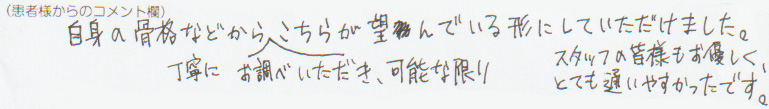 (患者様からのコメント欄)
自身の骨格などから こちらが望んでいる形にしていただけました。
丁寧に お調べいただき、可能な限り
スタッフの皆様もお優しく、
とても通いやすかったです。